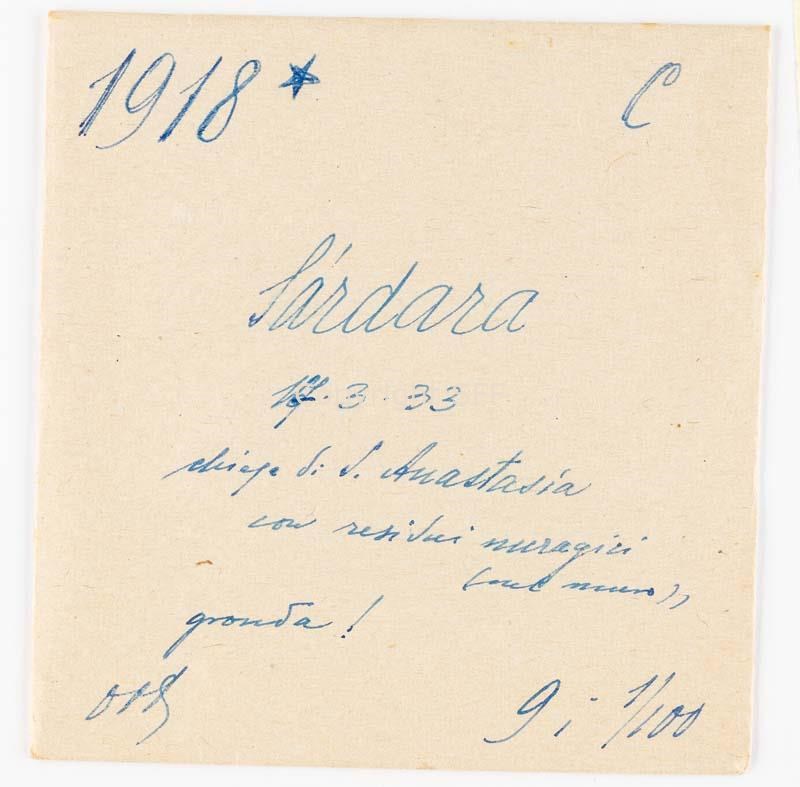 1918 * C
Sárdara
17.3.33
chiesa di S. Anastasia
con residui nuragici
(nel muro))
gronda!
9 i 1/100